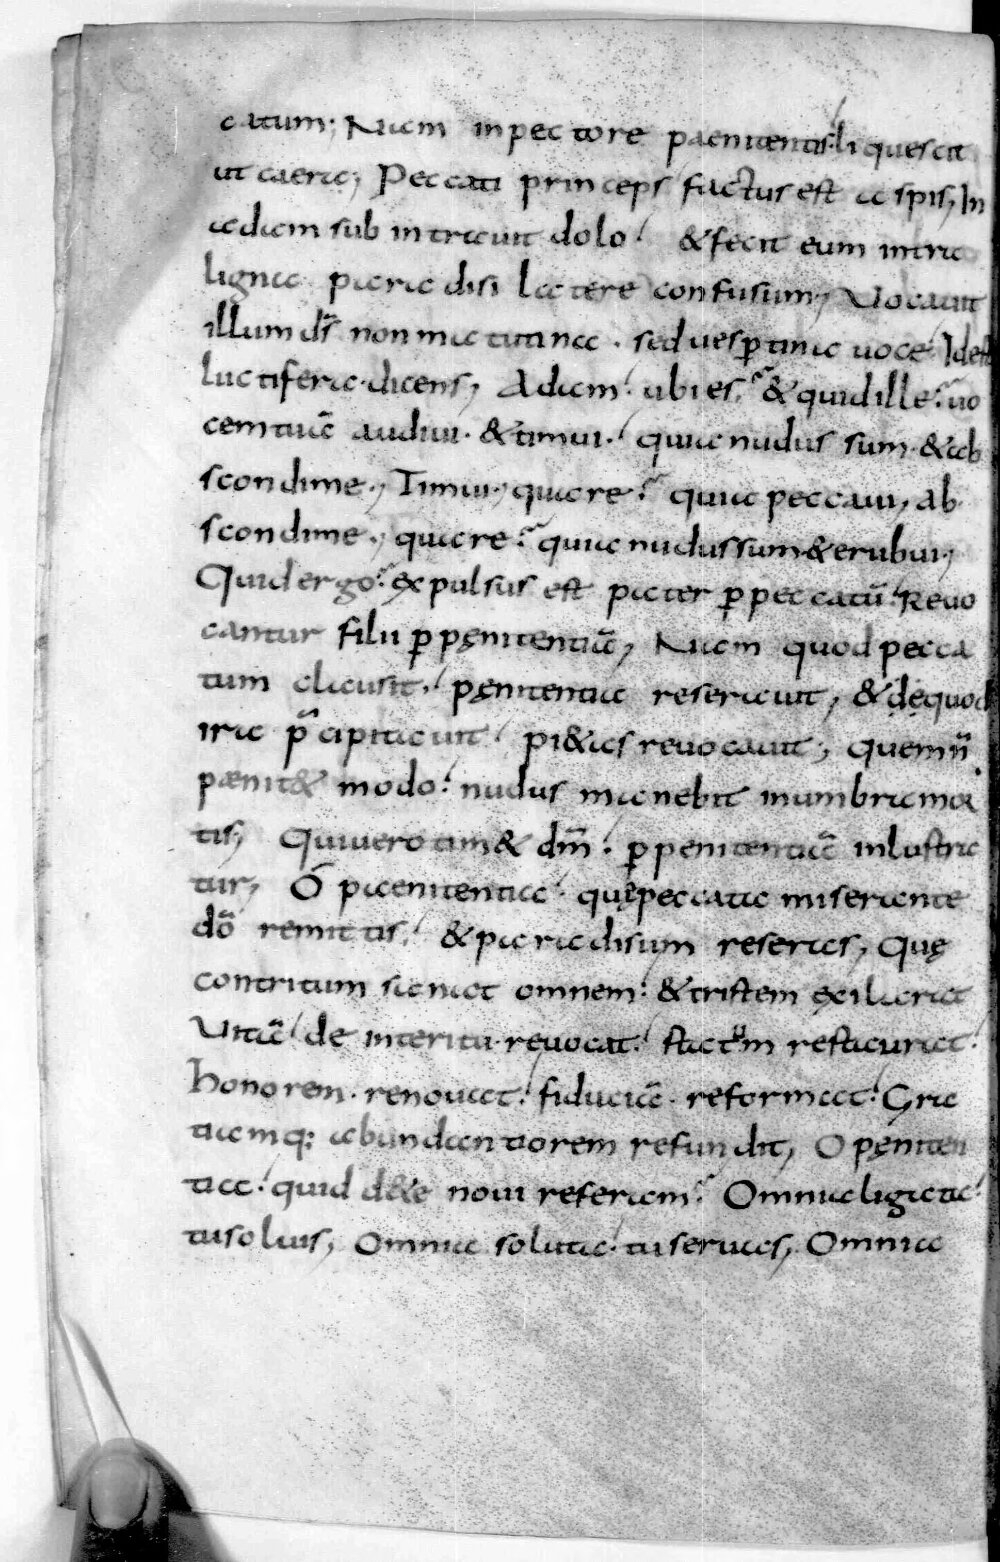 catum; Nam in pectore paenitentis liquescit
ut caera; Peccati princeps factus est aspis, In
adam sub intrauit dolo. & fecit eum intra
ligna paradisi latere confusum; Uocauit
illum dr̄ non matutina. sed uesp̱tina uoce. Idest
luctifera. dicens; Adam. ubi es? & quid ille? uo
cem tuā audiui. & timui. quia nudus sum. & ab
scondi me; Timui; quare? quia peccaui, ab
scondi me; quare? quia nudus sum & erubui;
Quid ergo? expulsus est pater p̱ peccatū. Reuo
cantur filii p̱ pęnitentiā; Nam quod pecca
tum clausit. pęnitentia reserauit; & de quod
ira p̄cipitauit. pi&as reuocauit; quem n̄
pænit& modo. nudus manebit in umbra mor
tis; Qui uero tim& dm̄. p̱ penitentiā inlustra
tur; O paenitentia. quę peccata miserante
dō remittis. & paradisum reseras; Quę
contritum sanat omnem. & tristem exilarat
Uitā de interitu reuocat. statum restaurat.
honorem renouat. fiduciā reformat. Gra
tiamq; abundantiorem refundit; O pęniten
tia. quid de te noui referam? Omnia ligata
tu soluis; Omnia soluta. tu seruas; Omnia